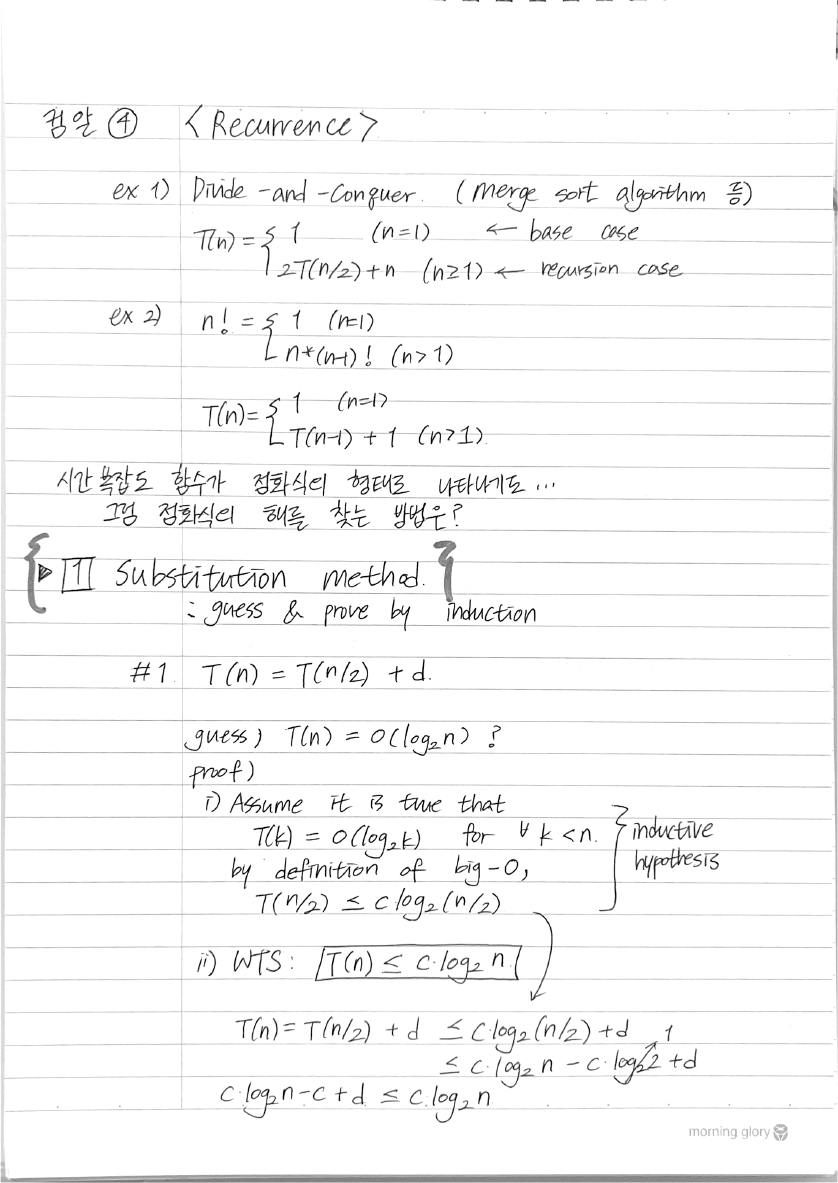 컴알 ④ <Recurrence>
ex 1) Divide-and-Conquer. (merge sort algorithm 등)
T(n) = { 1 (n=1) ← base case
2T(n/2)+n (n≥1) ← recursion case
ex 2) n! = { 1 (n=1)
n*(n-1)! (n>1)
T(n) = { 1 (n=1)
T(n-1) + 1 (n>1)
시간 복잡도 함수가 점화식의 형태로 나타나기도 ...
그럼 점화식의 해를 찾는 방법은?
▶ 1 Substitution method.
: guess & prove by induction
#1. T(n) = T(n/2) + d.
guess) T(n) = O(log₂n) ?
proof)
i) Assume it is true that
T(k) = O(log₂k) for ∀ k<n.
inductive
by definition of big-O,
hypothesis
T(n/2) ≤ c log₂(n/2)
ii) WTS: T(n) ≤ c·log₂ n
T(n) = T(n/2) + d ≤ c·log₂(n/2) + d
1
≤ c·log₂n - c·log₂2 + d
c·log₂n - c + d ≤ c·log₂n
morning glory